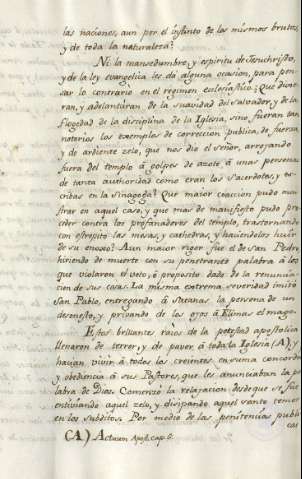 las naciones, aun por el instinto de los mismos brutos,
y de toda la naturaleza?
Ni la mansedumbre, y espiritu de Jesuchristo,
y de la ley evangelica les dá alguna ocasion, para pen-
sar lo contrario en el regimen eclesiastico. Que dixe-
ran, y adelantáran de la suavidad del Salvador, y de la
flogedad de la disciplina de la Iglesia, sino fueran tan
notorios los exemplos de correccion publica, de fuerza,
y de ardiente zelo, que nos dio el señor, arrojando
fuera del templo á golpes de azote á unas personas
de tanta authoridad como eran los Sacerdotes, y es-
cribas en la sinagoga? Que maior coaccion pudo mos-
trar en aquel caso, y que mas de manifiesto pudo pro-
ceder contra los profanadores del templo, trastornando
con estrepito las mesas, y cathedras, y haciendolos huir
de su enojo? Aun maior rigor fue el de San Pedro
hiriendo de muerte con su penetrante palabra á los
que violaron el voto, ó proposito dado de la renuncia-
cion de sus cosas. La misma extrema severidad imitó
San Pablo, entregando á Satanas la persona de un
deshonesto, y privando de los ojos á Elimas el mago.
Estos brillantes raios de la potestad apostolica
llenaron de terror, y de pavor á toda la Iglesia (A), y
hacian vivir á todos los creientes en suma concordia
y obediencia á sus Pastores, que les anunciaban la pa-
labra de Dios. Comenzó la relajacion desde que se fue
entiviando aquel zelo, y disipando aquel santo temor
en los subditos. Por medio de las penitencias publi-
cas
(A.) Actuum Apost. cap. 5.